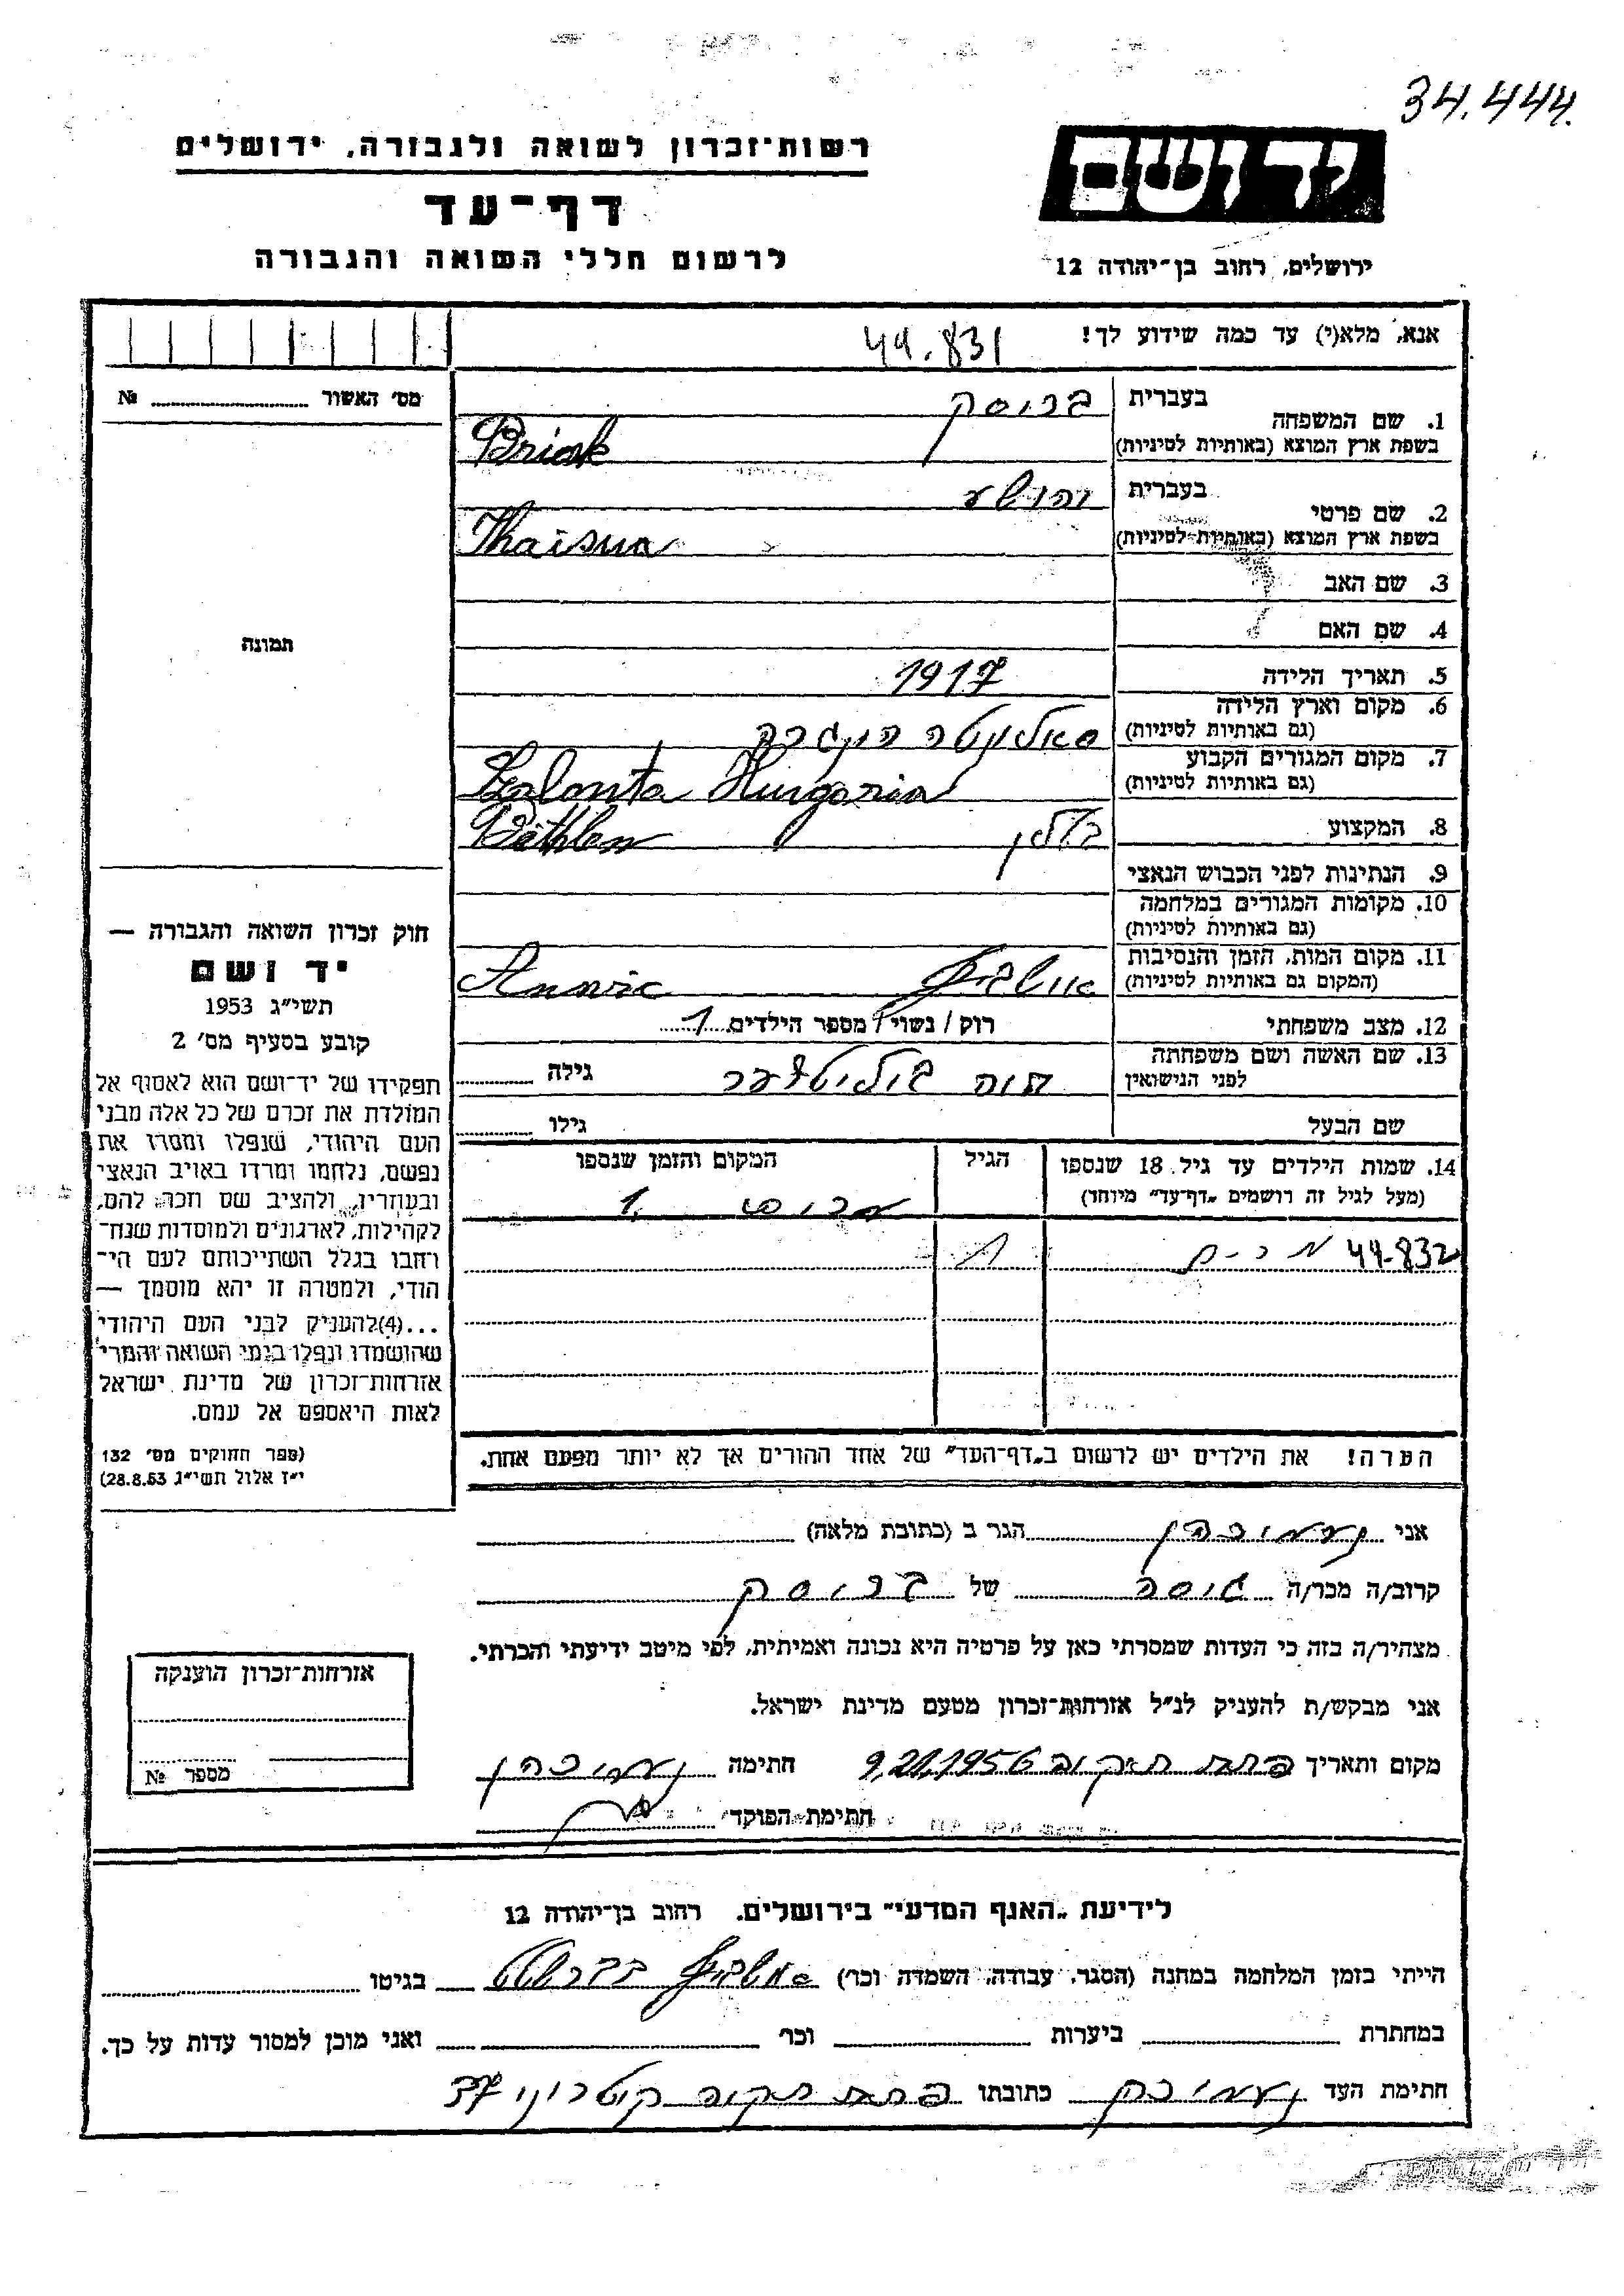 34.444.
רשות־זכרון לשואה ולגבורה, ירושלים
דף־עד
לרשום חללי השואה והגבורה
יד ושם
ירושלים, רחוב בן־יהודה 12
אנא, מלא(י) עד כמה שידוע לך!
44.831
מס׳ האשור № 
1. שם המשפחה
בעברית ברוסק
בשפת ארץ המוצא (באותיות לטיניות)
2. שם פרטי
בעברית יהושע
בשפת ארץ המוצא (באותיות לטיניות)
3. שם האב
4. שם האם
5. תאריך הלידה 1917
6. מקום וארץ הלידה
(גם באותיות לטיניות)
7. מקום המגורים הקבוע
(גם באותיות לטיניות) Hungaria
8. המקצוע Bethlen בטלן
9. הנתינות לפני הכבוש הנאצי
10. מקומות המגורים במלחמה
(גם באותיות לטיניות)
11. מקום המות, הזמן והנסיבות
(המקום גם באותיות לטיניות)
12. מצב משפחתי רוק / נשוי / מספר הילדים 1
13. שם האשה ושם משפחתה
לפני הנישואין חוה גילה
שם הבעל גילו
14. שמות הילדים עד גיל 18 שנספו הגיל המקום והזמן שנספו
(מעל לגיל זה רושמים „דף־עד״ מיוחד)
44-832
הערה! את הילדים יש לרשום ב„דף־העד״ של אחד ההורים אך לא יותר מפעם אחת.
תמונה
חוק זכרון השואה והגבורה —
יד ושם
תשי״ג 1953
קובע בסעיף מס׳ 2
תפקידו של יד־ושם הוא לאסוף אל
המולדת את זכרם של כל אלה מבני
העם היהודי, שנפלו ומסרו את
נפשם, נלחמו ומרדו באויב הנאצי
ובעוזריו, ולהציב שם וזכר להם,
לקהילות, לארגונים ולמוסדות שנח־
רחבו בגלל השתייכותם לעם הי־
הודי, ולמטרה זו יהא מוסמך —
...(4)להעניק לבני העם היהודי
שהושמדו ונפלו בימי השואה והמרי
אזרחות־זכרון של מדינת ישראל
לאות היאספם אל עמם.
(ספר החוקים מס׳ 132
י״ז אלול תשי״ג 28.8.53)
אני הגר ב (כתובת מלאה)
קרוב/ה מכר/ה גיסה של ברוסק
מצהיר/ה בזה כי העדות שמסרתי כאן על פרטיה היא נכונה ואמיתית, לפי מיטב ידיעתי והכרתי.
אני מבקש/ת להעניק לנ״ל אזרחות־זכרון מטעם מדינת ישראל.
מקום ותאריך פתח תיקוה 1956 חתימה
חתימת־הפוקד
אזרחות־זכרון הוענקה
מספר №
לידיעת „האגף המדעי״ בירושלים, רחוב בן־יהודה 12
הייתי בזמן המלחמה במחנה (הסגר, עבודה, השמדה וכו׳) בגיטו
במחתרת ביערות וכו׳ ואני מוכן למסור עדות על כך.
חתימת העד כתובתו פתח תקוה 37